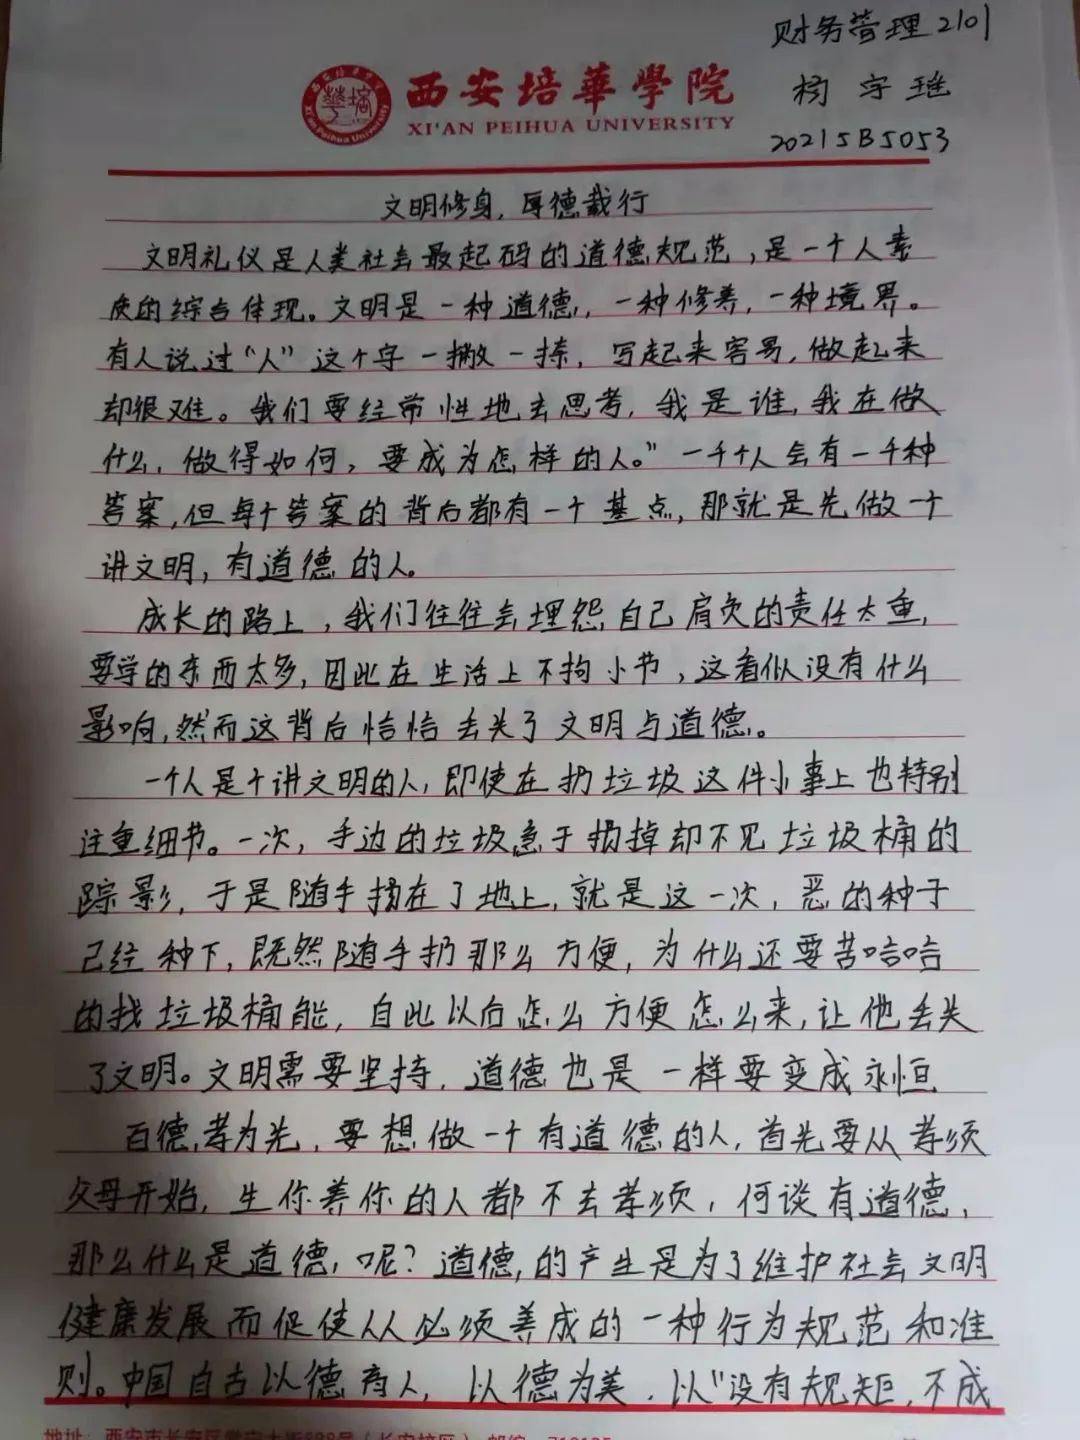 财务管理2101
西安培華學院
杨宇
XI'AN PEIHUA UNIVERSITY
20215B5053
文明修身，厚德载行
文明礼仪是人类社会最起码的道德规范，是一个人素
质的综合体现。文明是一种道德，一种修养，一种境界。
有人说过“人”这个字一撇一捺，写起来容易，做起来
却很难。我们要经常性地去思考，我是谁，我在做
什么，做得如何，要成为怎样的人。”一千个人会有一千种
答案，但每个答案的背后都有一个基点，那就是先做一个
讲文明，有道德的人。
成长的路上，我们往往会埋怨自己肩负的责任太重，
要学的东西太多，因此在生活上不拘小节，这看似没有什么
影响，然而这背后恰恰丢失了文明与道德。
一个人是个讲文明的人，即使在扔垃圾这件小事上也特别
注重细节。一次，手边的垃圾急于扔掉却不见垃圾桶的
踪影，于是随手扔在了地上，就是这一次，恶的种子
已经种下，既然随手扔那么方便，为什么还要苦哈哈
的找垃圾桶能，自此以后怎么方便怎么来，让他丢失
了文明。文明需要坚持，道德也是一样要变成永恒
百德孝为先，要想做一个有道德的人，首先要从孝顺
父母开始，生你养你的人都不去孝顺，何谈有道德，
那么什么是道德呢？道德的产生是为了维护社会文明
健康发展而促使人从必须养成的一种行为规范和准
则。中国自古以德育人，以德为美，以“没有规矩，不成